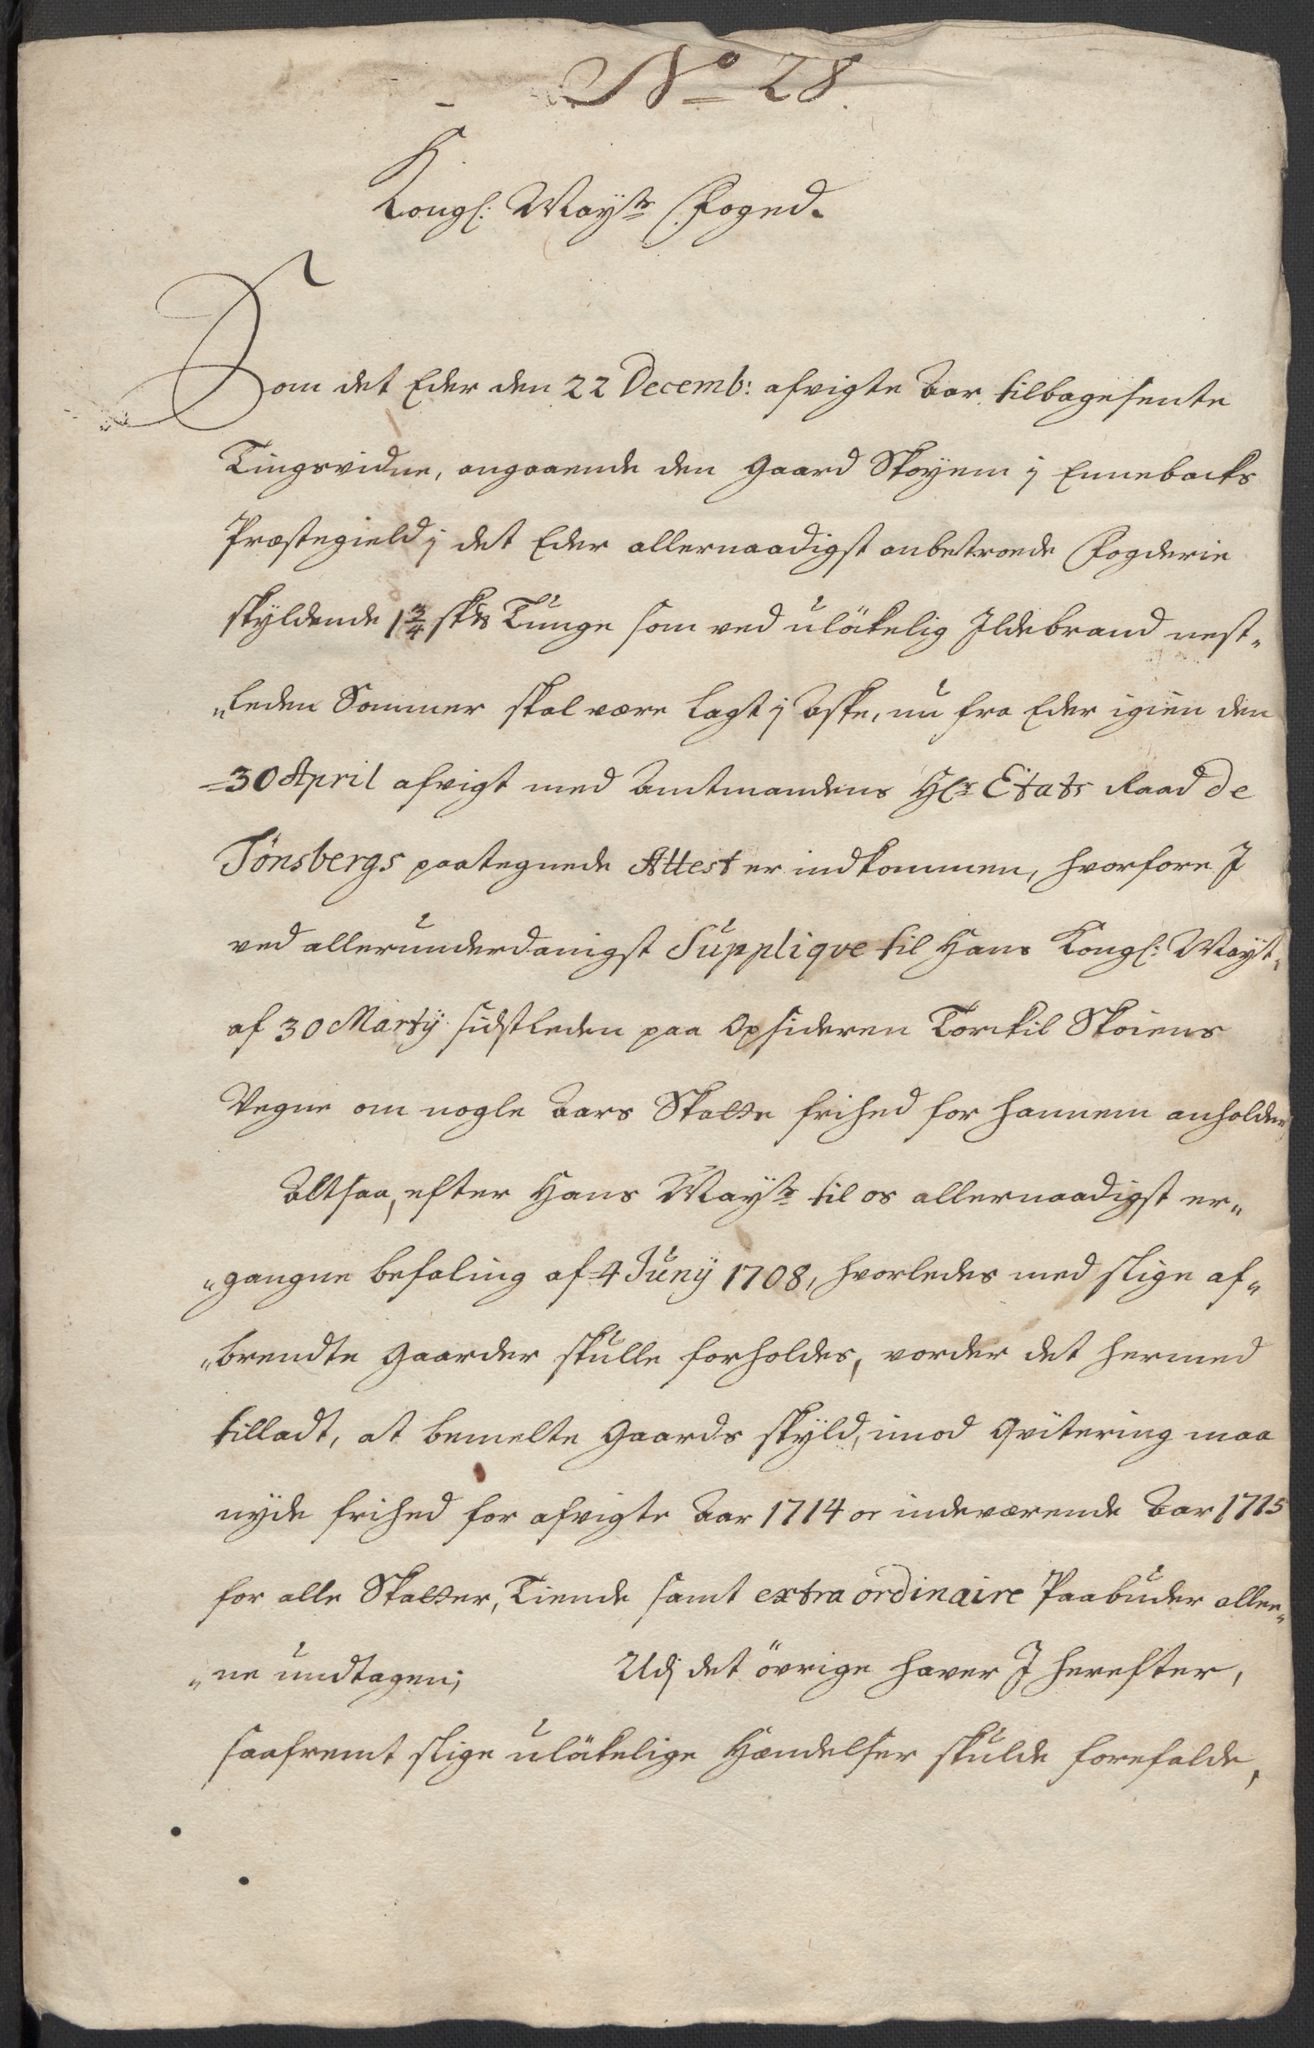 No 28.
Kongl: Mayts Foged.
Som det Eder den 22 Decemb: afvigte Aar tilbagesente
Tingsvidne, angaaende den Gaard Skøyem j Ennebacks
Præstegield j det Eder allernaadigst anbetroede Fogderie
skyldende 1 3/4 skds Tunge som ved uløkelig Ildebrand nest-
"leden Sommer skal være lagt j Aske, nu fra Eder igien den
30 April afvigt med Amtmandens Hr Etats Raad de
Tönsbergs paategnede Attest er indkommen, hvorfore J
ved allerunderdanigst Supplique til Hans Kongl: Mayt.
af 30 Martij sidstleden paa Opsideren Torckil Skøiens
Vegne om nogle Aars Skatte frihed for hannem anholder
Altsaa, efter Hans Mayts til os allernaadigst er-
"gangne befaling af 4 Junij 1708, hvorledes med slige af-
"brendte Gaarder skulle forholdes, vorder det hermed
tilladt, at bemelte Gaards skyld, imod Qvitering maa
nyde frihed for afvigte Aar 1714 oc indeværende Aar 1715
for alle Skatter, Tiende samt extra ordinaire Paabuder allee-
"ne undtagen; Udj det övrige haver J herefter,
saafremt slige uløkelige Hændelser skulde forefalde,